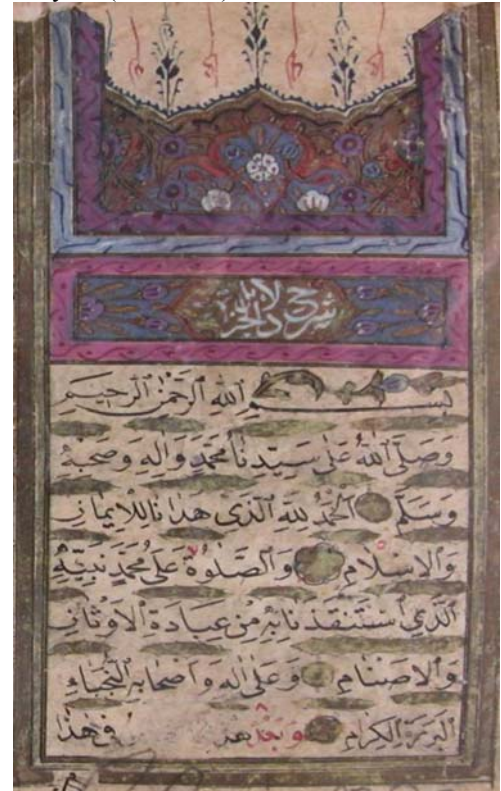 شرح دلائل الخير
بسم الله الرحمن الرحيم
وَصَلَّى اللهُ عَلَى سَيِّدِنَا مُحَمَّدٍ وَالِهِ وَصَحْبِهِ
وَسَلَّمَ اَلْحَمْدُ لِلهِ الَّذِى هَدَانَا لِلْاِيمَانِ
وَالْاِسْلَامِ وَالصَّلٰوةُ عَلَى مُحَمَّدٍ نَبِيِّهِ
الَّذِي اسْتَنْقَذَنَا بِهِ مِنْ عِبَادَةِ الْاَوْثَانِ
وَالْاَصْنَامِ وَعَلَى اٰلِهِ وَاَصْحَابِهِ النُّجَبَاءِ
الْبَرَرَةِ الْكِرَامِ وَبَعْدُ فهذا